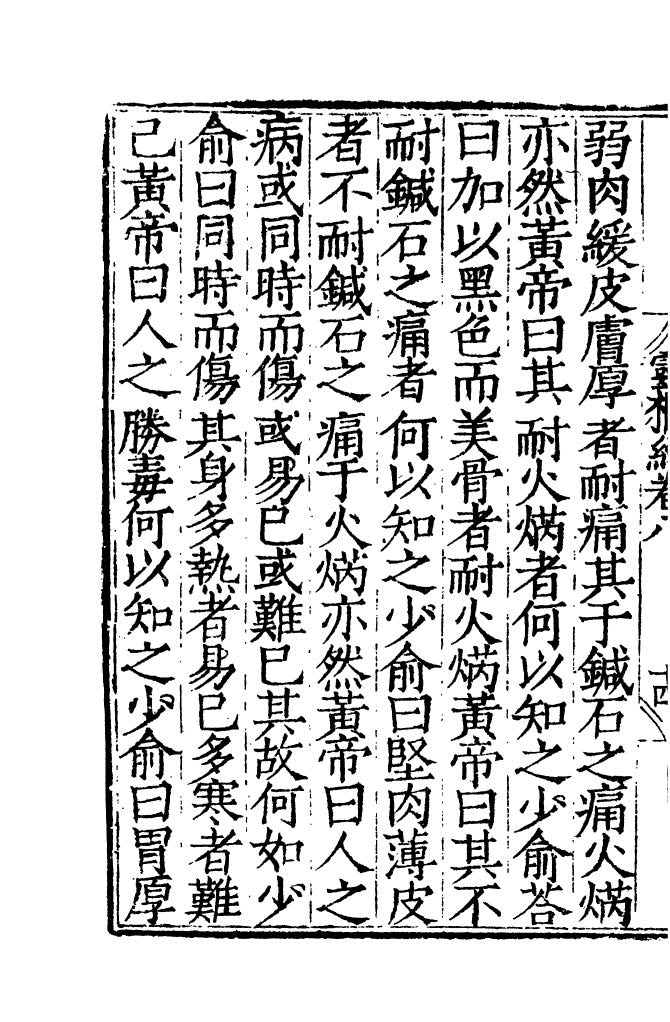 靈樞經卷八
十四
弱肉緩皮膚厚者耐痛其于鍼石之痛火焫
亦然黃帝曰其耐火焫者何以知之少俞荅
曰加以黑色而美骨者耐火焫黃帝曰其不
耐鍼石之痛者何以知之少俞曰堅肉薄皮
者不耐鍼石之痛于火焫亦然黃帝曰人之
病或同時而傷或易已或難已其故何如少
俞曰同時而傷其身多熱者易已多寒者難
已黃帝曰人之勝毒何以知之少俞曰胃厚